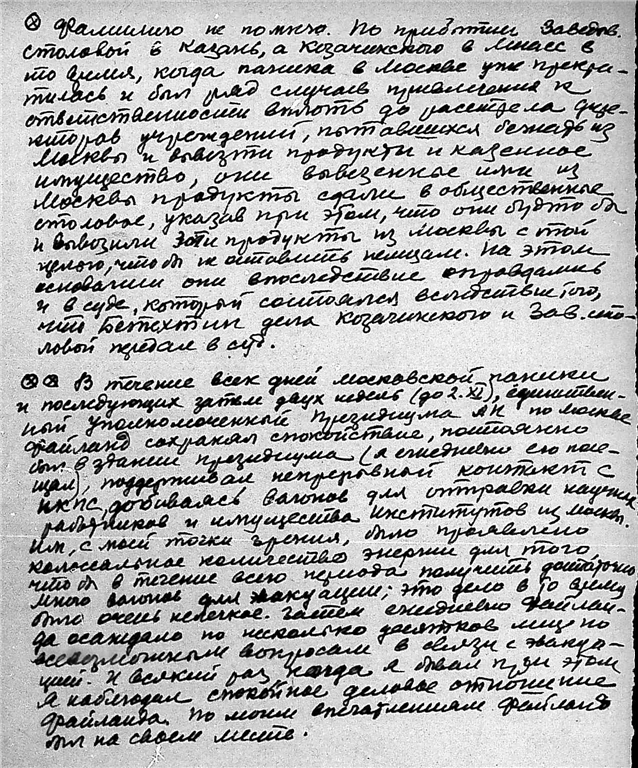 ⊗ Фамилию не помню. По прибытии Заведов.
столовой в Казань, а Козачинского в Миасс в
то время, когда паника в Москве уже прекра-
тилась и был ряд случаев привлечения к
ответственности вплоть до расстрела дире-
кторов учреждений, пытавшихся бежать из
Москвы и вывезти продукты и казенное
имущество, они вывезенные ими из
Москвы продукты сдали в общественные
столовые, указав при этом, что они будто бы
и вывозили эти продукты из Москвы с той
целью, что бы не оставить немцам. На этом
основании они впоследствие оправдались
и в суде, который состоялся вследствии того,
что Бетехтин дела Козачинского и Зав. сто-
ловой передал в суд.
⊗⊗ В течение всех дней московской паники
и последующих затем двух недель (до 2.XI), единствен-
ный уполномоченный Президиума АН по Москве
Файланд сохранял спокойствие, постоянно
был в здании президиума (я ежедневно его посе-
щал), поддерживал непрерывный контакт с
НКПС, добиваясь вагонов для отправки научных
работников и имущества институтов из Москвы.
Им, с моей точки зрения, было проявлено
колоссальное количество энергии для того,
что бы в течение всего периода получить достаточно
много вагонов для эвакуации; это дело в то время
было очень нелегкое. Затем ежедневно Файлан-
да осаждало по несколько десятков лиц по
всевозможным вопросам в связи с эвакуа-
цией. И всякий раз когда я бывал при этом
я наблюдал спокойное деловое отношение
Файланда. По моим впечатлениям Файланд
был на своем месте.